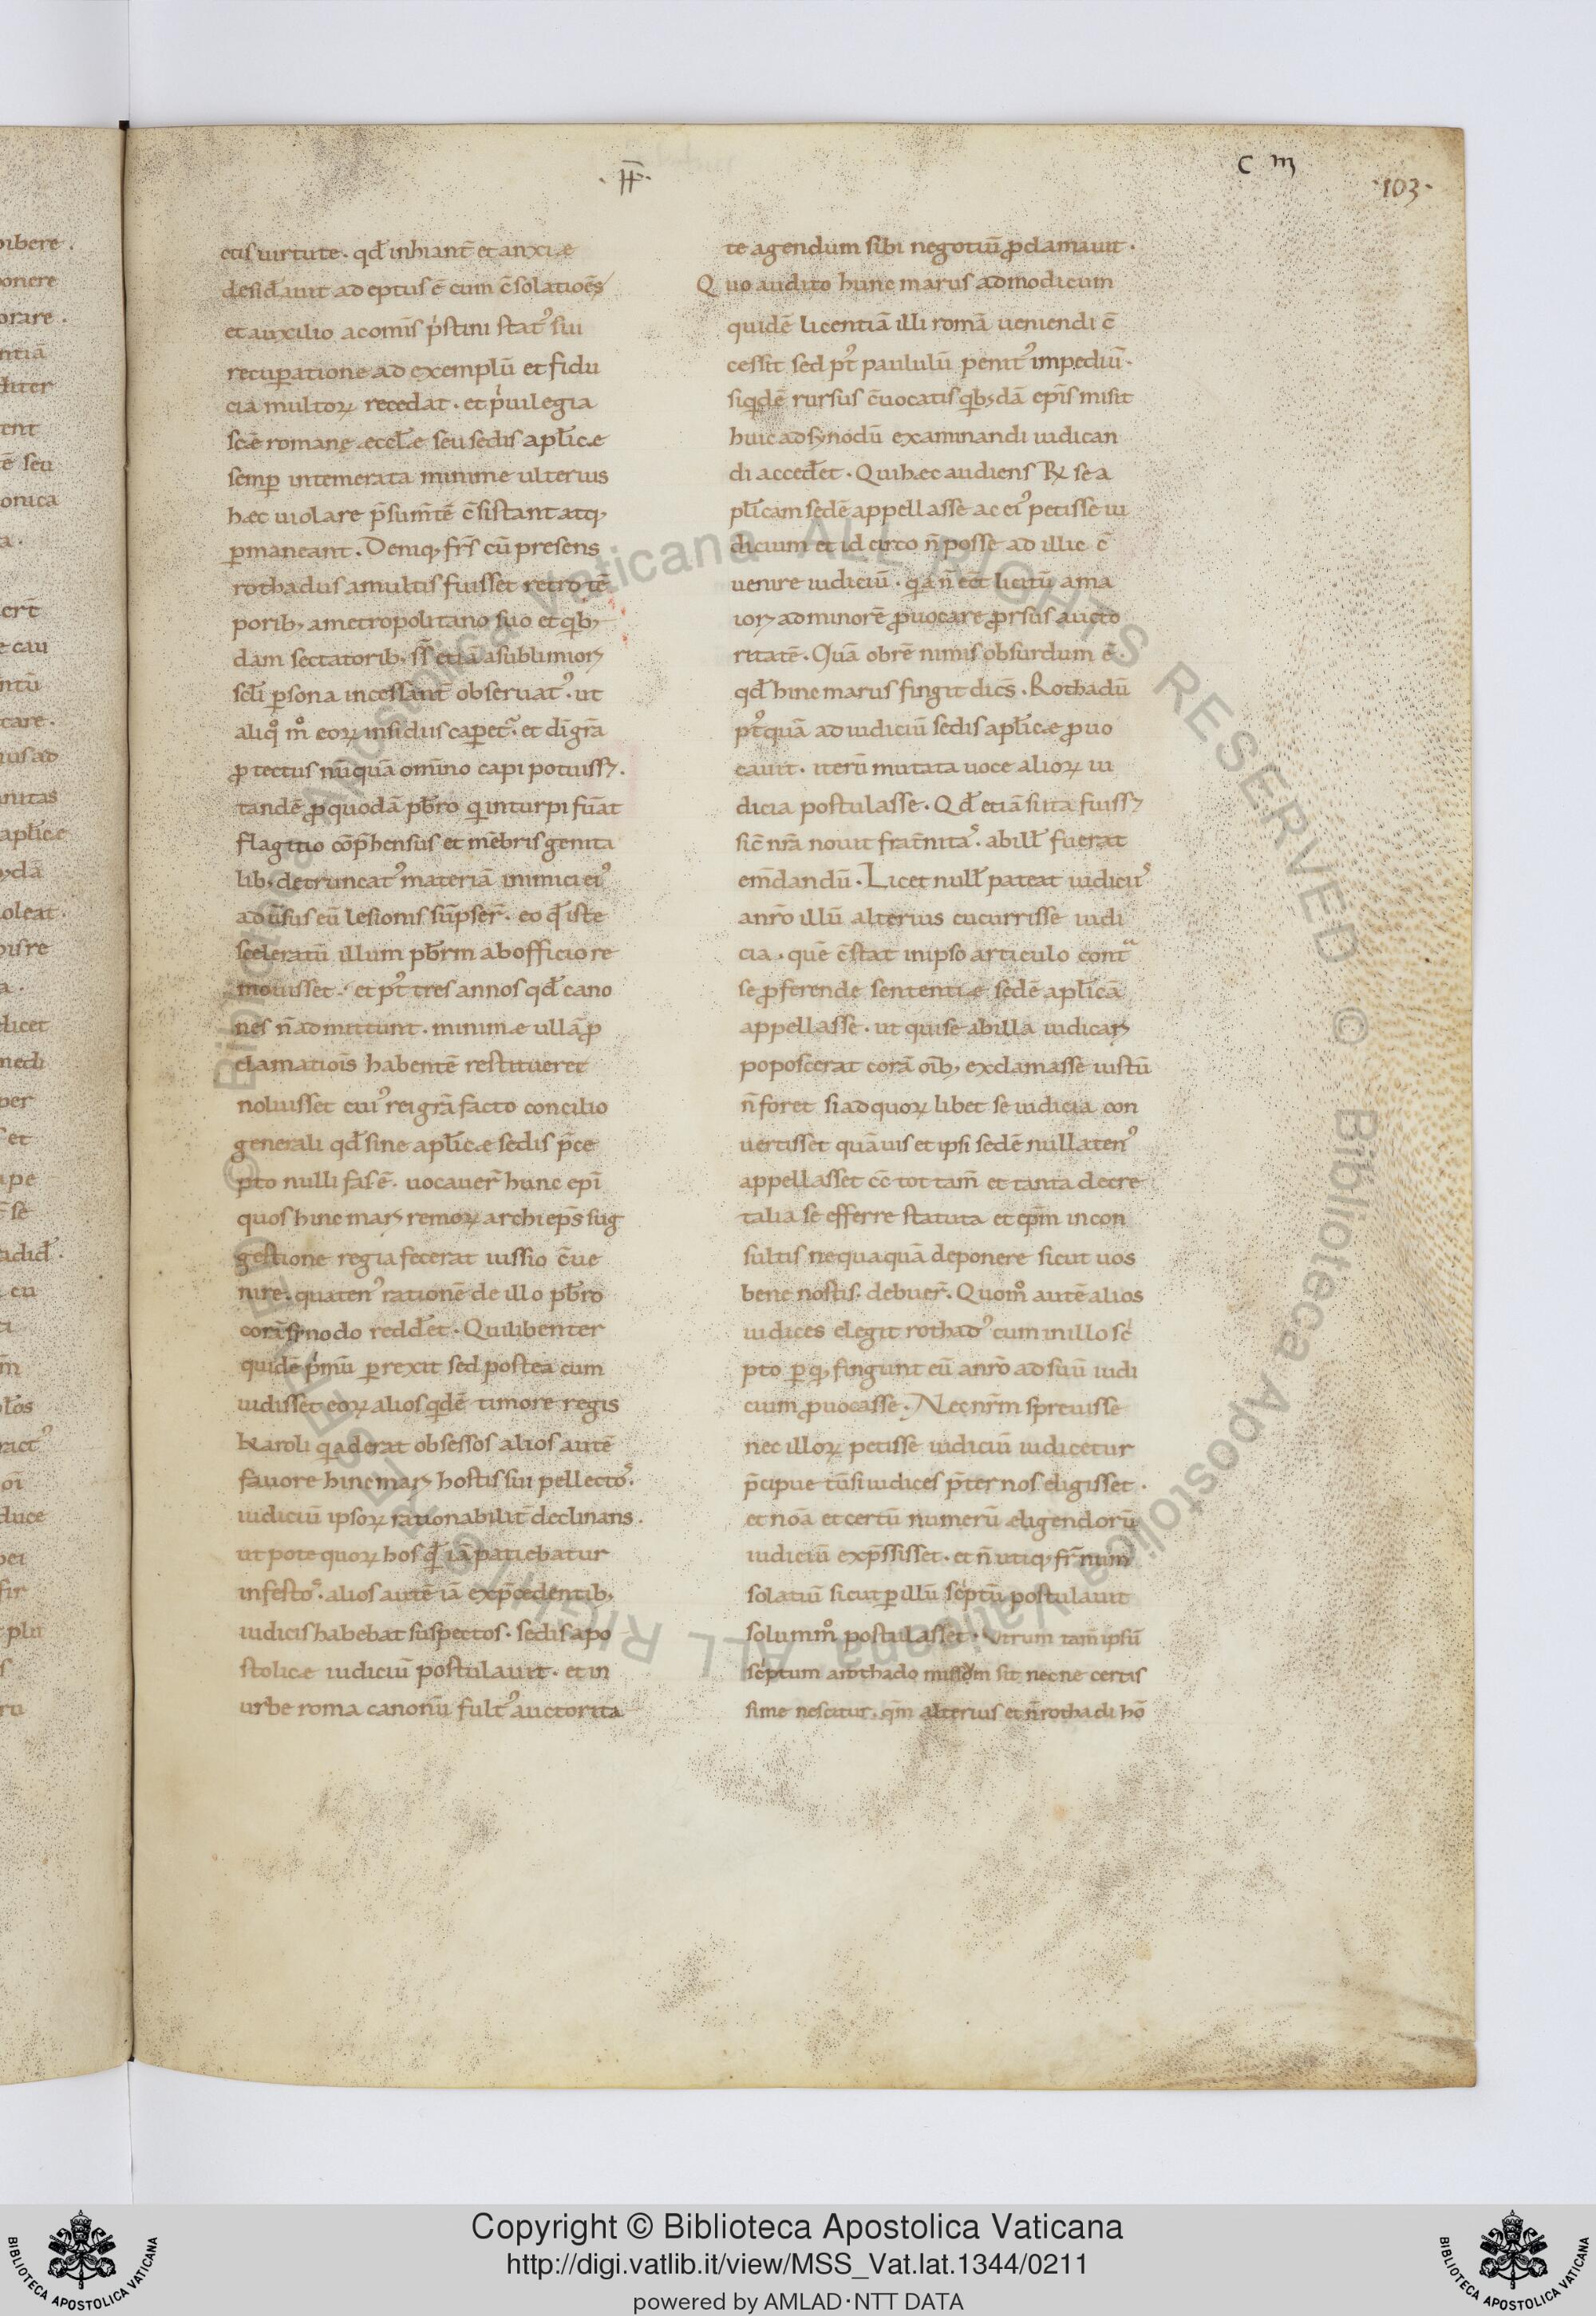 ·H̄·
c m
·103·
etis uirtute. qđ inhiant̄ et anxiæ
desid̄auit adeptus ē cum c̄solatioēs
et auxilio acom̄s p̓stini stat᾽ sui
recup̱atione ad exemplū et fidu
cia multoꝝ recedat. et p̓uilegia
scē romanę ęccƚæ seu sedis apƚicæ
semp̱ intemerata minime ulterius
hæc uiolare p̄sum̄tē c̄sistant atq;
p̱maneant. Deniq; fr̄s cū presens
rothadus amultis fuisset retro tē
porib; ametropolitano suo et qb;
dam sectatorib. sƚ etiā asublimiorꝫ
scƚi p̱sona incessant̄ obseruat᾽. ut
aliqͦ mͦ eoꝝ insidiis cap̱et᾽. et dī gr̄a
ꝓtectus nūquā omīno capi potuissꝫ.
tandē ꝓ quodā pƀro q inturpi fūat
flagitio cōp̄hensus et mēbris genita
lib; detruncat᾽ materiā inimici ei᾽
adūsus eū lesionis sūpser̄. eo qđ iste
sceleratū illum pƀrm abofficio re
mouisset. et pt᾽ tres annos qđ cano
nes n̄ admittunt. minimæ ullā ꝓ
clamatiois̄ habentē restitueret
noluisset cui᾽ rei gr̄a facto concilio
generali qđ sine apƚicæ sedis p̄ce
pto nulli fas ē. uocauer̄ hunc epī
quos hincmarꝫ remoꝝ archiep̄s sug
gestione regia fecerat iussio c̄ue
nire. quaten᾽ rationē de illo pƀro
corā synodo redđet. Qui libenter
quidē p̓mū p̱rexit sed postea cum
uidisset eoꝝ alios qdē timore regis
karoli q aderat obsessos alios autē
fauore hincmarꝫ hostis sui pellecto᾽s.
iudiciū ipsoꝝ rationabilit̄ declinans.
ut pote quoꝝ hos qđ iā patiebatur
infesto᾽s. alios autē iā exp̄cedentib;
iudicis habebat suspectos. sedis apo
stolicæ iudiciū postulauit. et in
urbe roma canonū fult᾽ auctorita
te agendum sibi negotiū ꝓclamauit.
Quo audito huncmarus admodicum
quidē licentiā illi romā ueniendi c̄
cessit sed pt᾽ paululū penit᾽ impediū.
siqdē rursus c̄uocatis qb;dā epīs misit
huic ad synodū examinandi iudican
di accedƚet. Qui hæc audiens Rꝫ se a
pƚicam sedē appellasse ac ei᾽ petisse iu
dicium et id circo n̄ posse ad illic c̄
uenire iudiciū. qa n̄ eēt licitū ama
iorꝫ ad minorē ꝓuocare ꝓrsus aucto
ritatē. Quā obrē nimis obsurdum ē.
qđ hincmarus fingit dicēs. Rothadū
pt᾽quā ad iudiciū sedis apƚicæ ꝓuo
cauit. iterū mutata uoce alioꝝ iu
dicia postulasse. Qđ etiā si ita fuissꝫ
sic̄ nr̄a nouit frat̄nita᾽s. abilƚ fuerat
em̄dandū. Licet nulƚ pateat iudiciū᾽
anr̄o illū alterius cucurrisse iudi
cia. quē c̄stat in ipso articulo contᵃ
se ꝓferende sententiæ sedē apƚicā
appellasse. ut qui se abilla iudicarꝫ
poposcerat corā oīb; exclamasse iustū
n̄ foret si ad quoꝝ libet se iudicia con
uertisset quāuis et ipsi sedē nullaten᾽
appellasset c̄c tot tam̄ et tanta decre
talia se efferre statuta et ep̄m incon
sultis nequaquā deponere sicut uos
bene nostis. debuer̄. Quomͦ autē alios
iudices elegit rothad᾽ cum in illo sc̓
pto p̱ q; fingunt eū anr̄o ad suū iudi
cium ꝓuocasse. Nec nr̄m spreuisse
nec illoꝝ petisse iudiciū iudicetur
p̄cipue tū si iudices p̄ter nos eligisset.
et nōa et certū numerū eligendorū
iudiciū exp̄ssisset. et n̄ utiq; fr̄num
solatiū sicut p̱ illū sc̓ptū postulauit
solummͦ postulasset. Vtrum tam̄ ipsū
sc̓ptum arothado missom sit necne certis
sime nescitur. qm̄ alterius et n̄ rothadi hō
Copyright © Biblioteca Apostolica Vaticana
http://digi.vatlib.it/view/MSS_Vat.lat.1344/0211
powered by AMLAD·NTT DATA
BIBLIOTECA APOSTOLICA VATICANA
BIBLIOTECA APOSTOLICA VATICANA
© Biblioteca Apostolica Vaticana ALL RIGHTS RESERVED
© Biblioteca Apostolica Vaticana ALL RIGHTS RESERVED